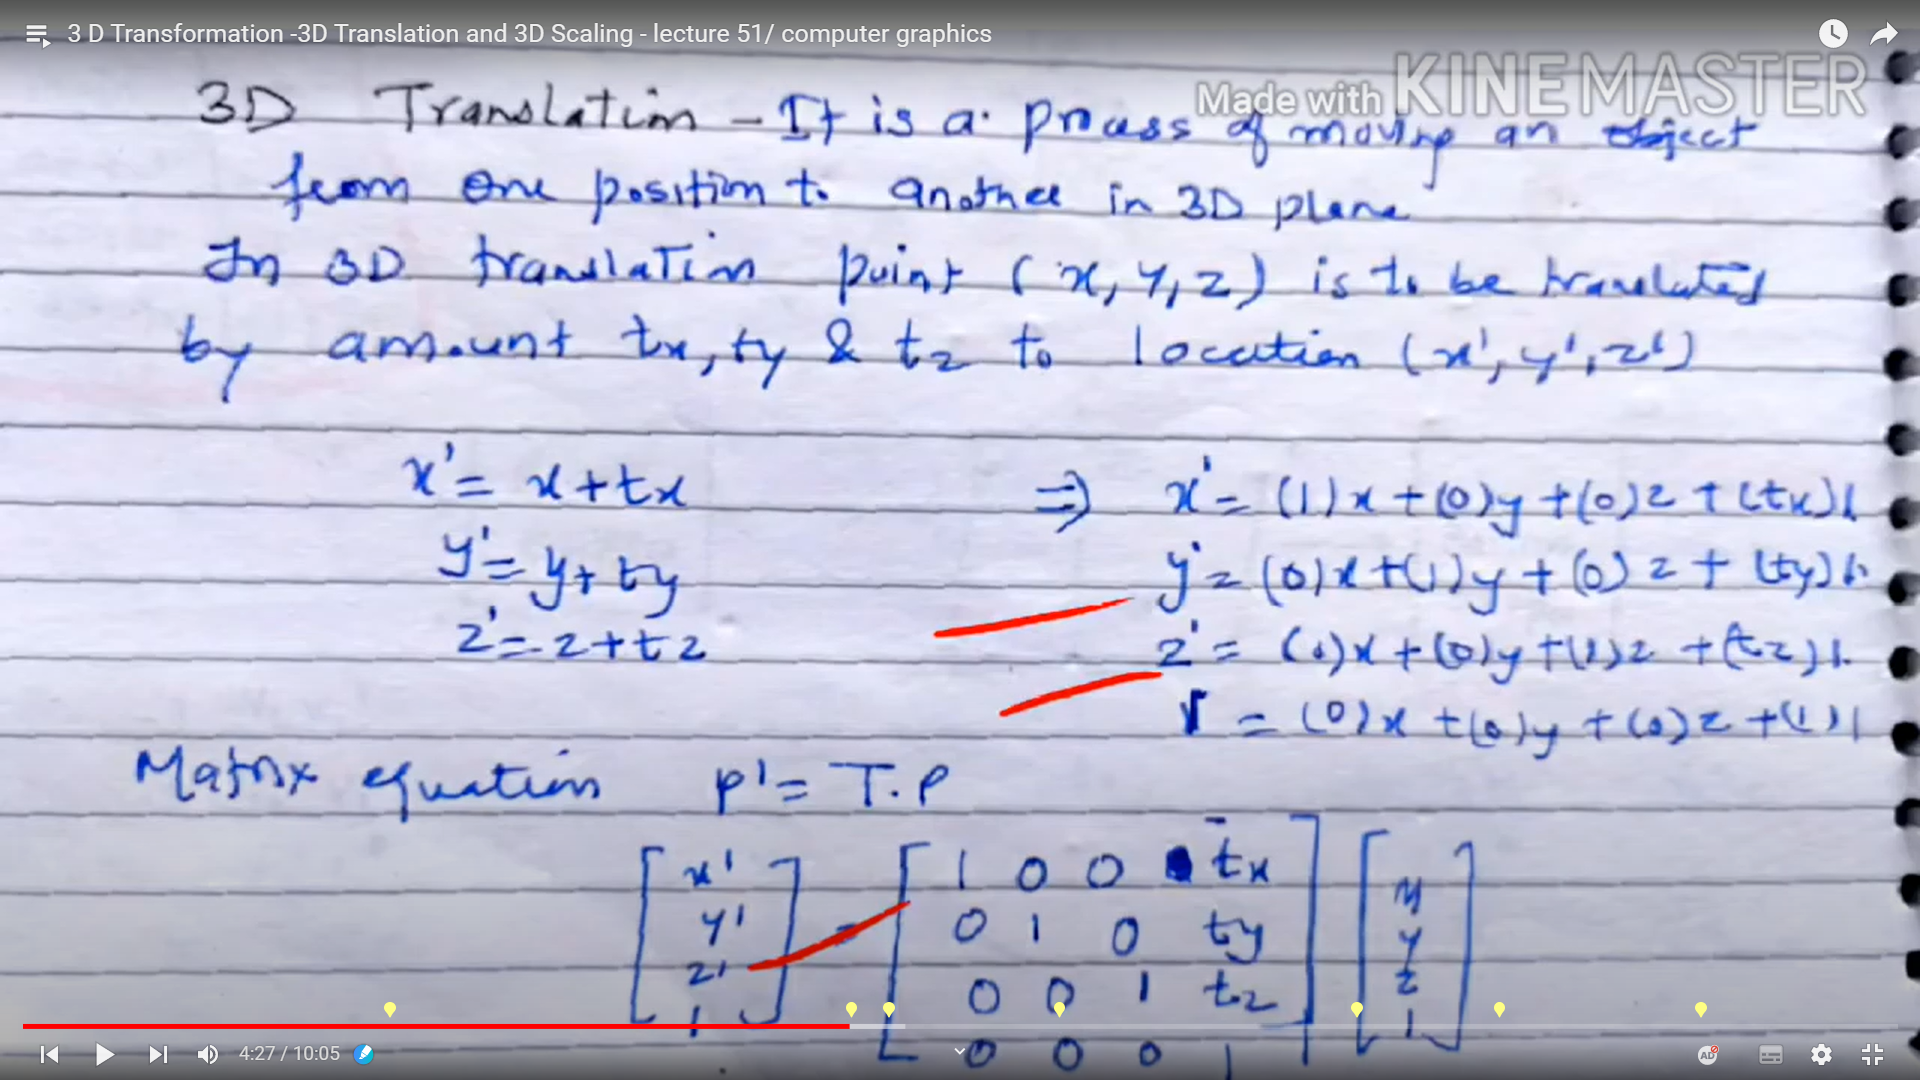 3 D Transformation -3D Translation and 3D Scaling - lecture 51/ computer graphics
Made with KINEMASTER
3D Translation - It is a process of moving an object
from one position to another in 3D plane
In 3D translation point (x, y, z) is to be translated
by amount tx, ty & tz to location (x', y', z')
x' = x + tx ⇒ x' = (1)x + (0)y + (0)z + (tx)1
y' = y + ty y' = (0)x + (1)y + (0)z + (ty)1.
z' = z + tz z' = (0)x + (0)y + (1)z + (tz)1.
1 = (0)x + (0)y + (0)z + (1)1
Matrix equation p' = T.P
x' 1 0 0 tx x
y' = 0 1 0 ty y
z' 0 0 1 tz z
1 0 0 0 1 1
4:27 / 10:05
AD